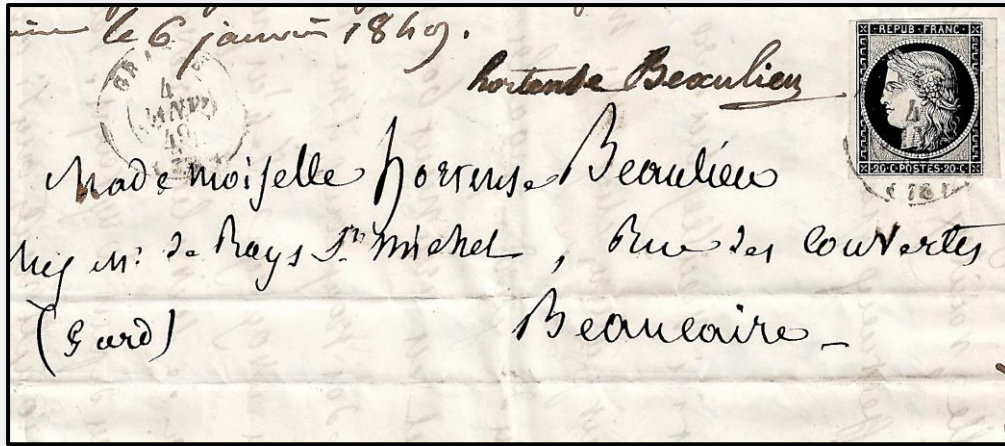 le 6 janvier 1849.
hortense Beaulieu
REPUB·FRANC·
4
JANV
49
20·C·POSTES·20·C
Mademoiselle hortense Beaulieu
de Rays St Michel, Rue des Couvertes
(Gard) Beaucaire